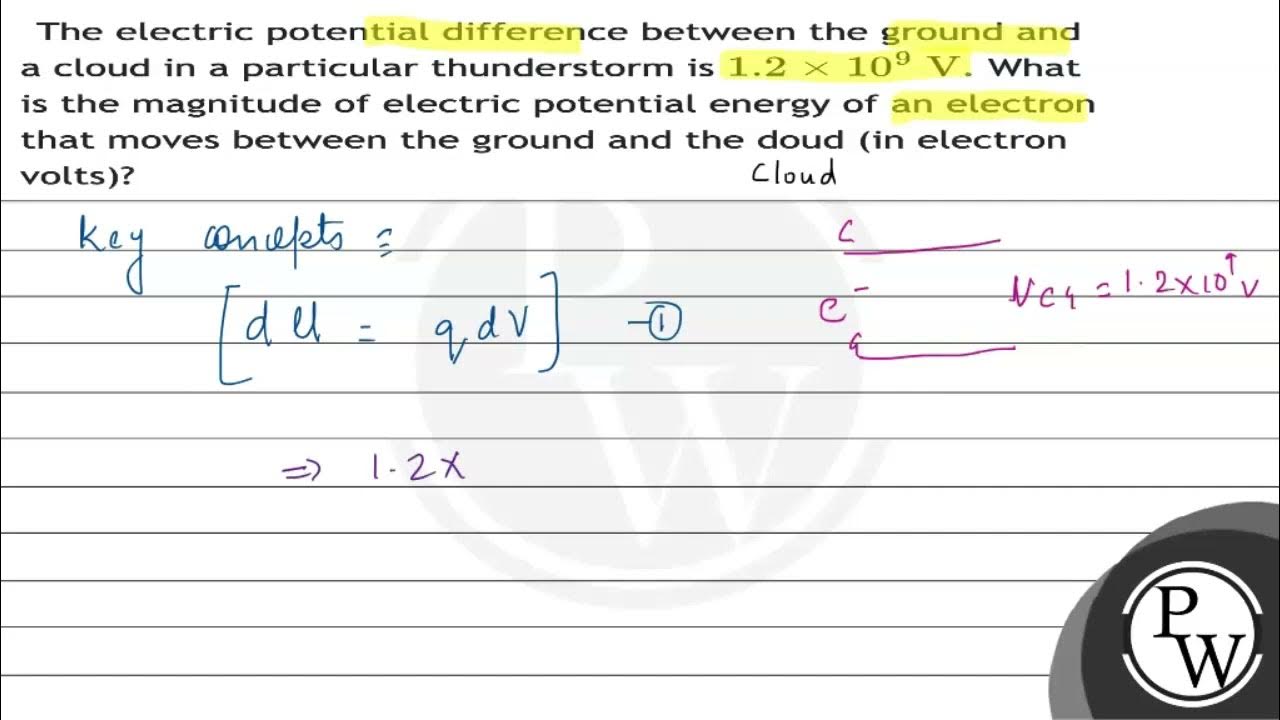 The electric potential difference between the ground and
a cloud in a particular thunderstorm is 1.2 × 10⁹ V. What
is the magnitude of electric potential energy of an electron
that moves between the ground and the doud (in electron
volts)?
Cloud
Key concepts :
[dU = q dV] -①
C
e⁻
G
= 1.2×10⁹ V
⇒ 1.2×
PW
PW